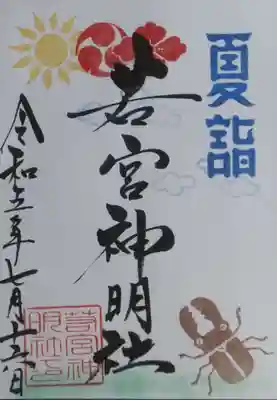 夏詣
若宮神明社
令和五年七月十六日
若宮神明社之印